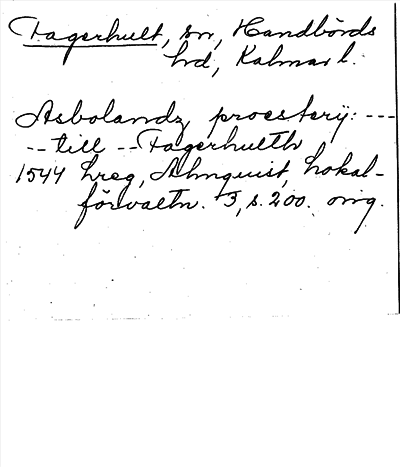 Fagerhult, sn, Handbörds
hd, Kalmar l.
Asbolandz proesterij: ---
-- till -- Fagerhullth
1544 hreg, Almquist, Lokal-
förvaltn. 3, s. 200. orig.